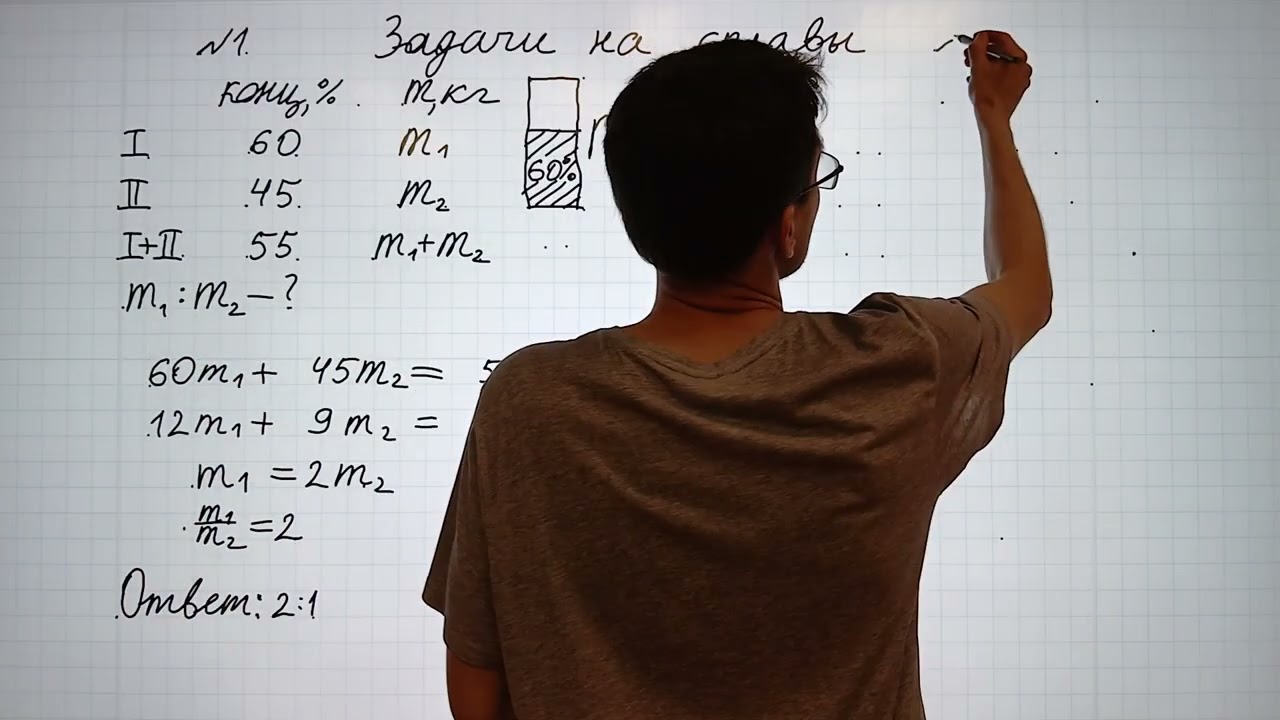 №1. Задачи на сплавы
конц,% m,кг
I 60 m₁ 60%
II 45 m₂
I+II 55 m₁+m₂
m₁:m₂-?
60m₁+ 45m₂= 5
12m₁+ 9m₂ =
m₁ =2m₂
m₁/m₂=2
Ответ: 2:1